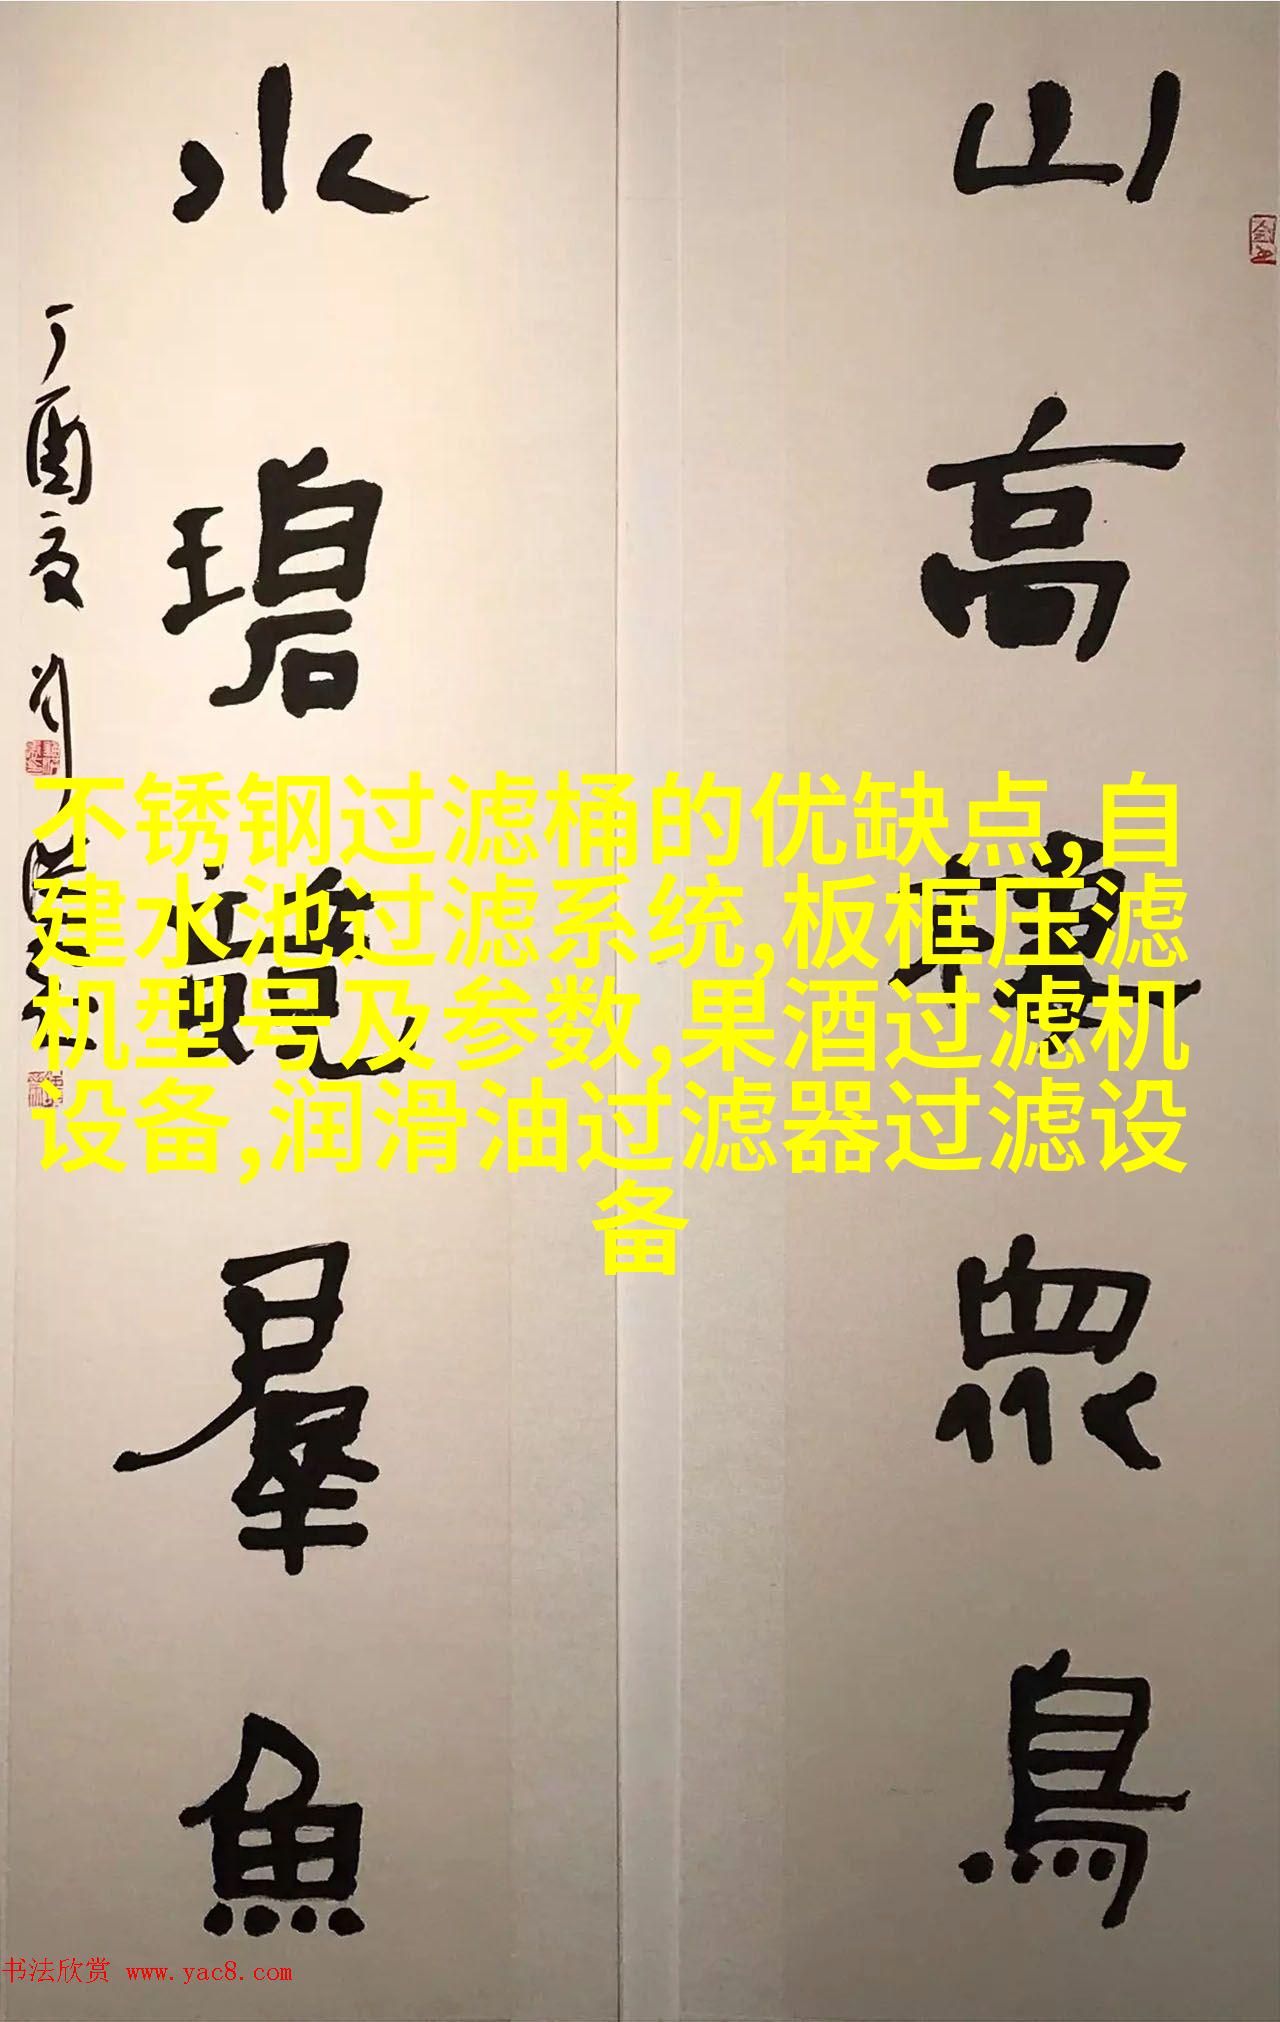 山高眾鳥
水碧羣魚
丁酉夏刘
不锈钢过滤桶的优缺点,自
建水池过滤系统,板框压滤
机型号及参数,果酒过滤机
设备,润滑油过滤器过滤设
备
书法欣赏 www.yac8.com